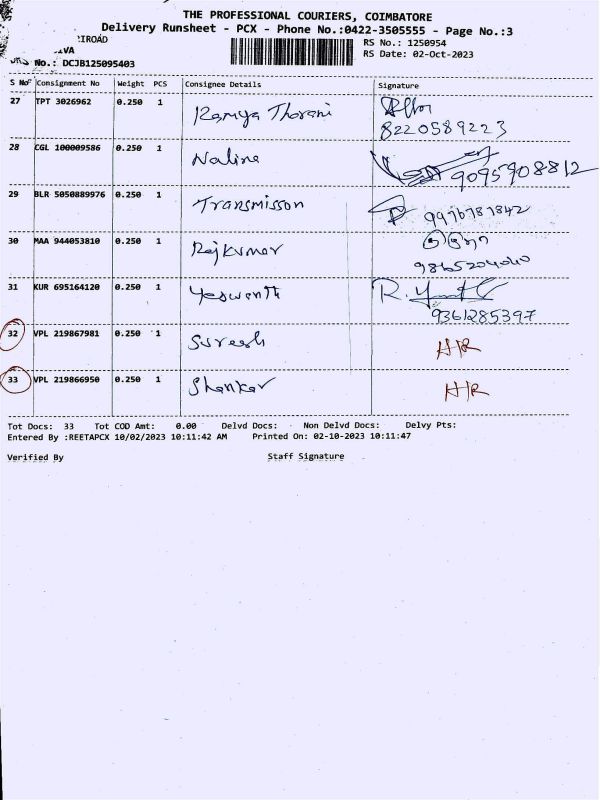 THE PROFESSIONAL COURIERS, COIMBATORE
Delivery Runsheet - PCX - Phone No.:0422-3505555 - Page No.:3
RS No.: 1250954
RS Date: 02-Oct-2023
No.: DCJB125095403
S No Consignment No Weight PCS Consignee Details Signature
27 TPT 3026962 0.250 1 Ramya Tharani
8220589223
28 CGL 100009586 0.250 1 Nalina
9095908812
29 BLR 5050889976 0.250 1 Transmisson
9976787842
30 MAA 944053810 0.250 1 Rajkumar
31 KUR 695164120 0.250 1 Yaswanth
9361285397
32 VPL 219867981 0.250 1 Suresh H/R
33 VPL 219866950 0.250 1 Shankar H/R
Tot Docs: 33 Tot COD Amt: 0.00 Delvd Docs: Non Delvd Docs: Delvy Pts:
Entered By :REETAPCX 10/02/2023 10:11:42 AM Printed On: 02-10-2023 10:11:47
Verified By Staff Signature